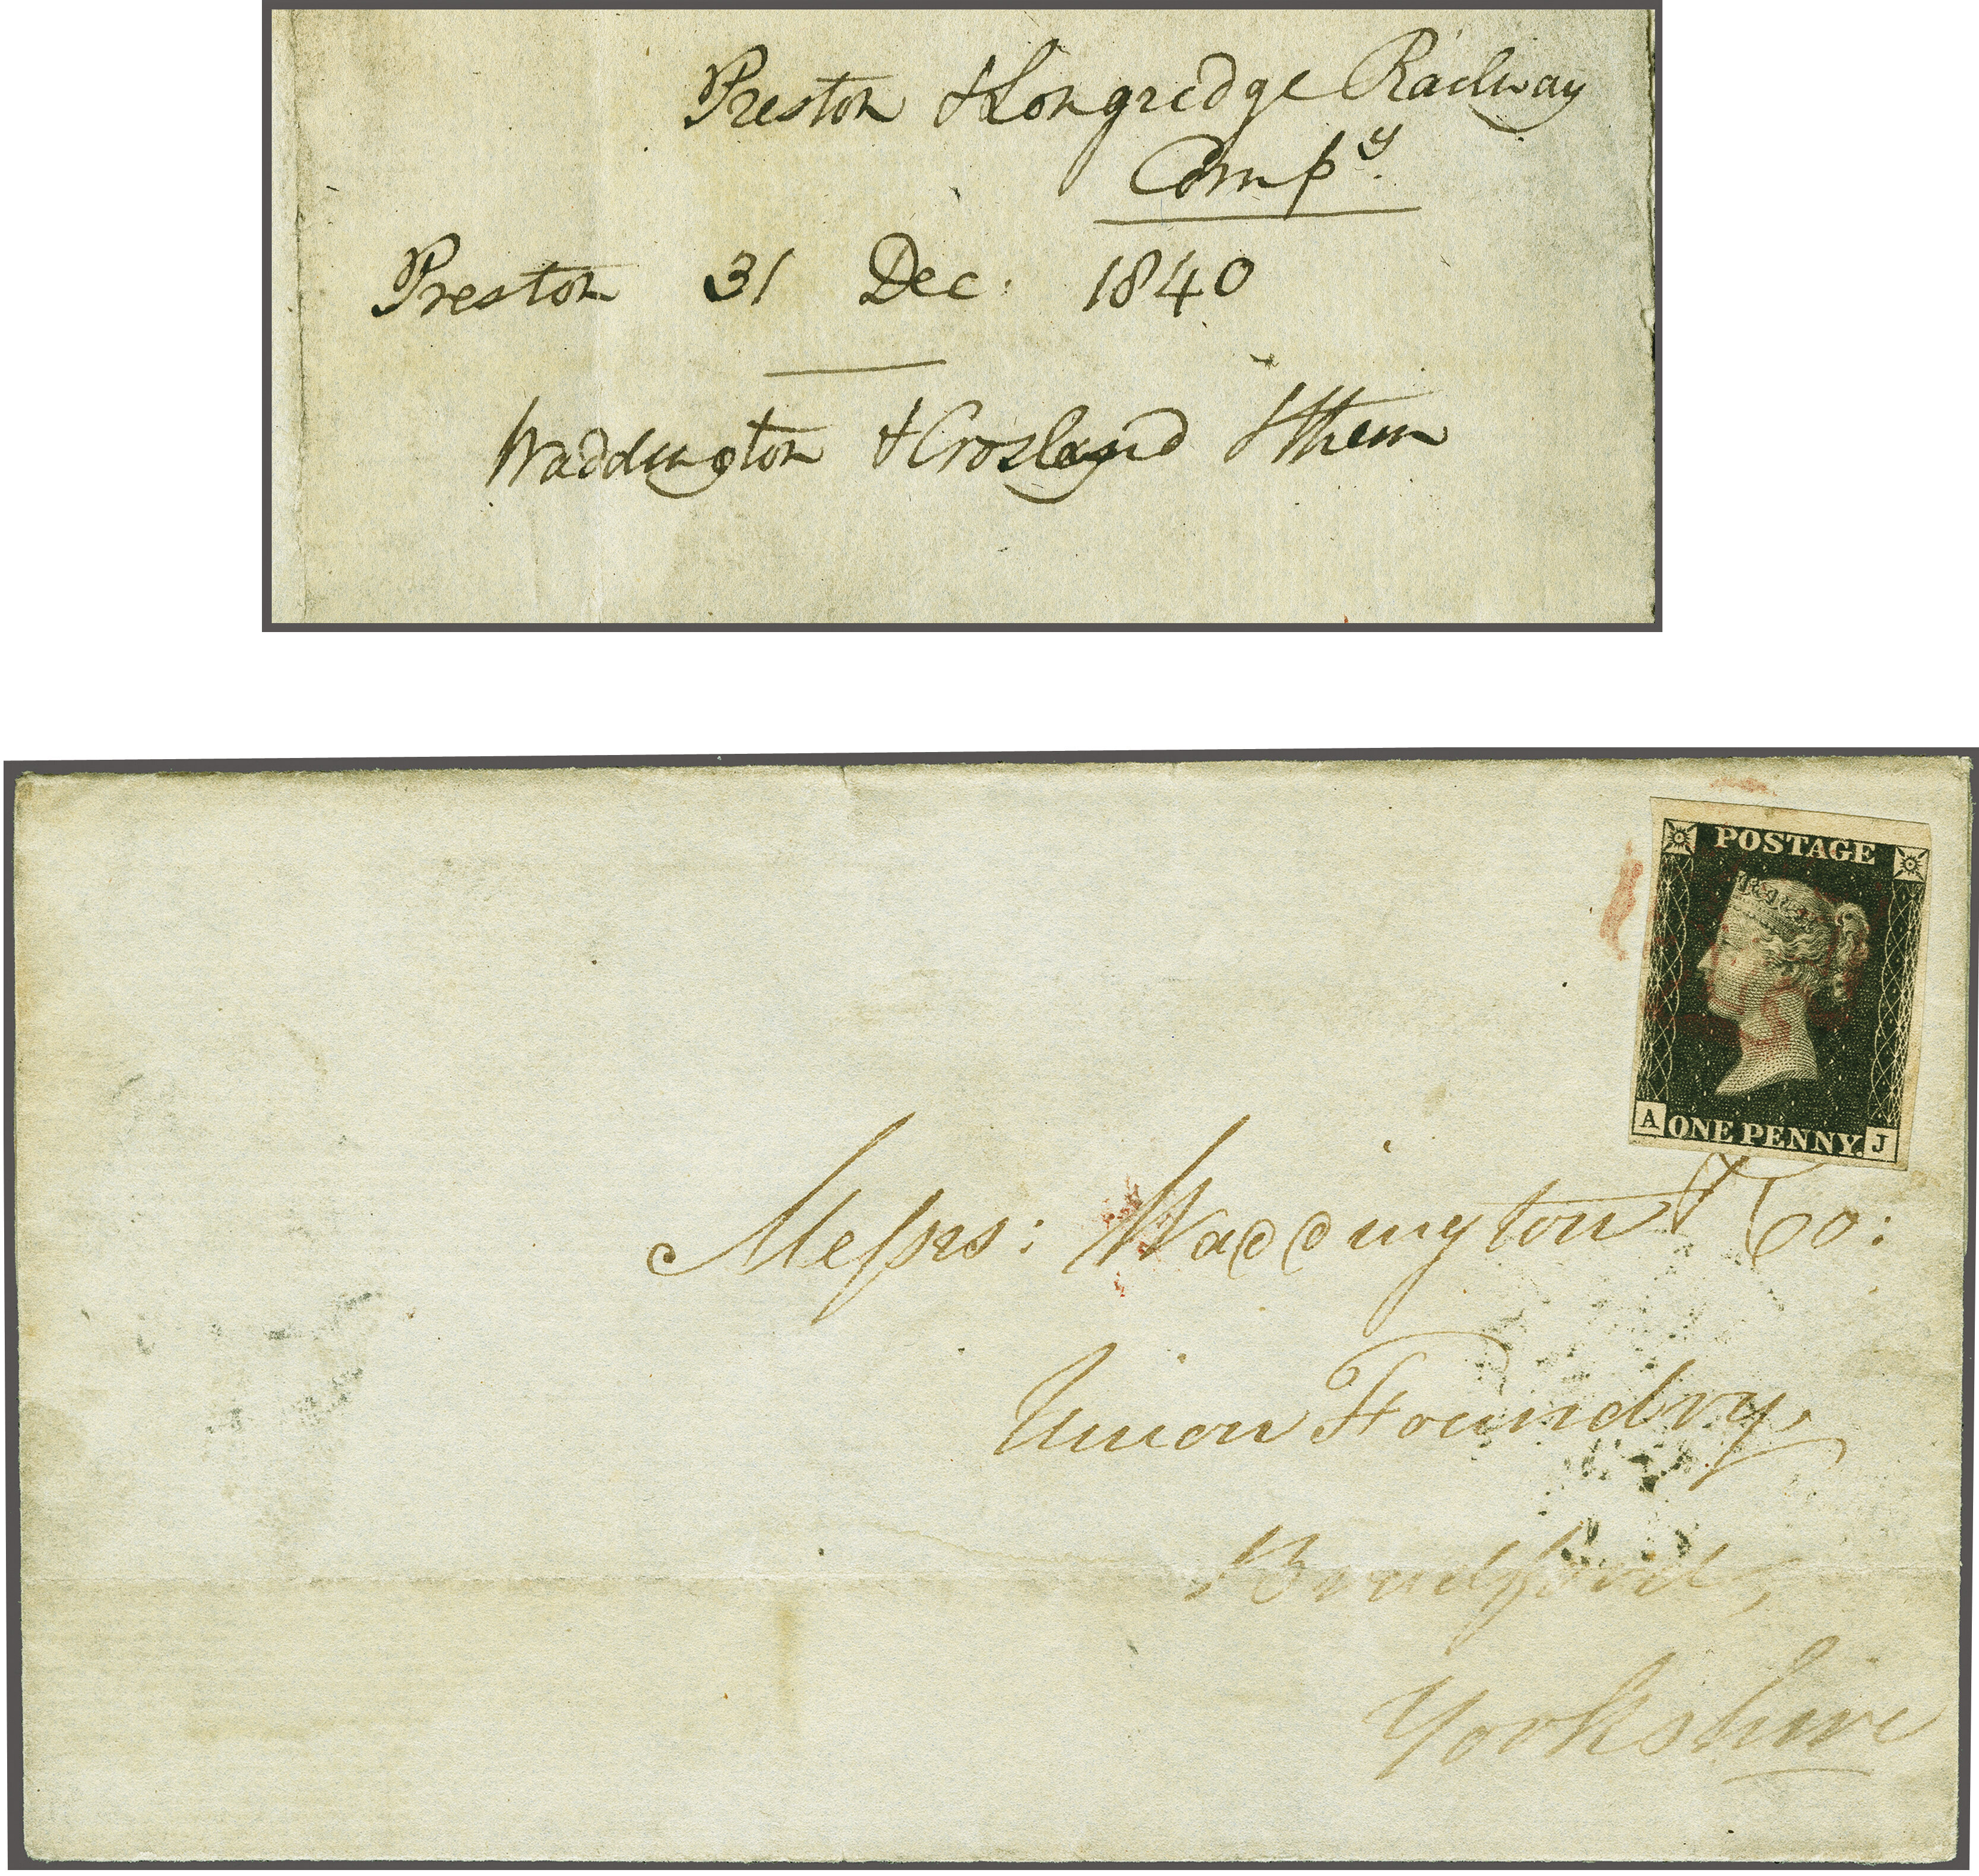 Preston & Longridge Railway
Compy.
Preston 31 Dec. 1840
Waddington & Crosland & them
POSTAGE
A ONE PENNY. J
Messrs: Waddington & Co:
Union Foundry,
Bradford,
Yorkshire